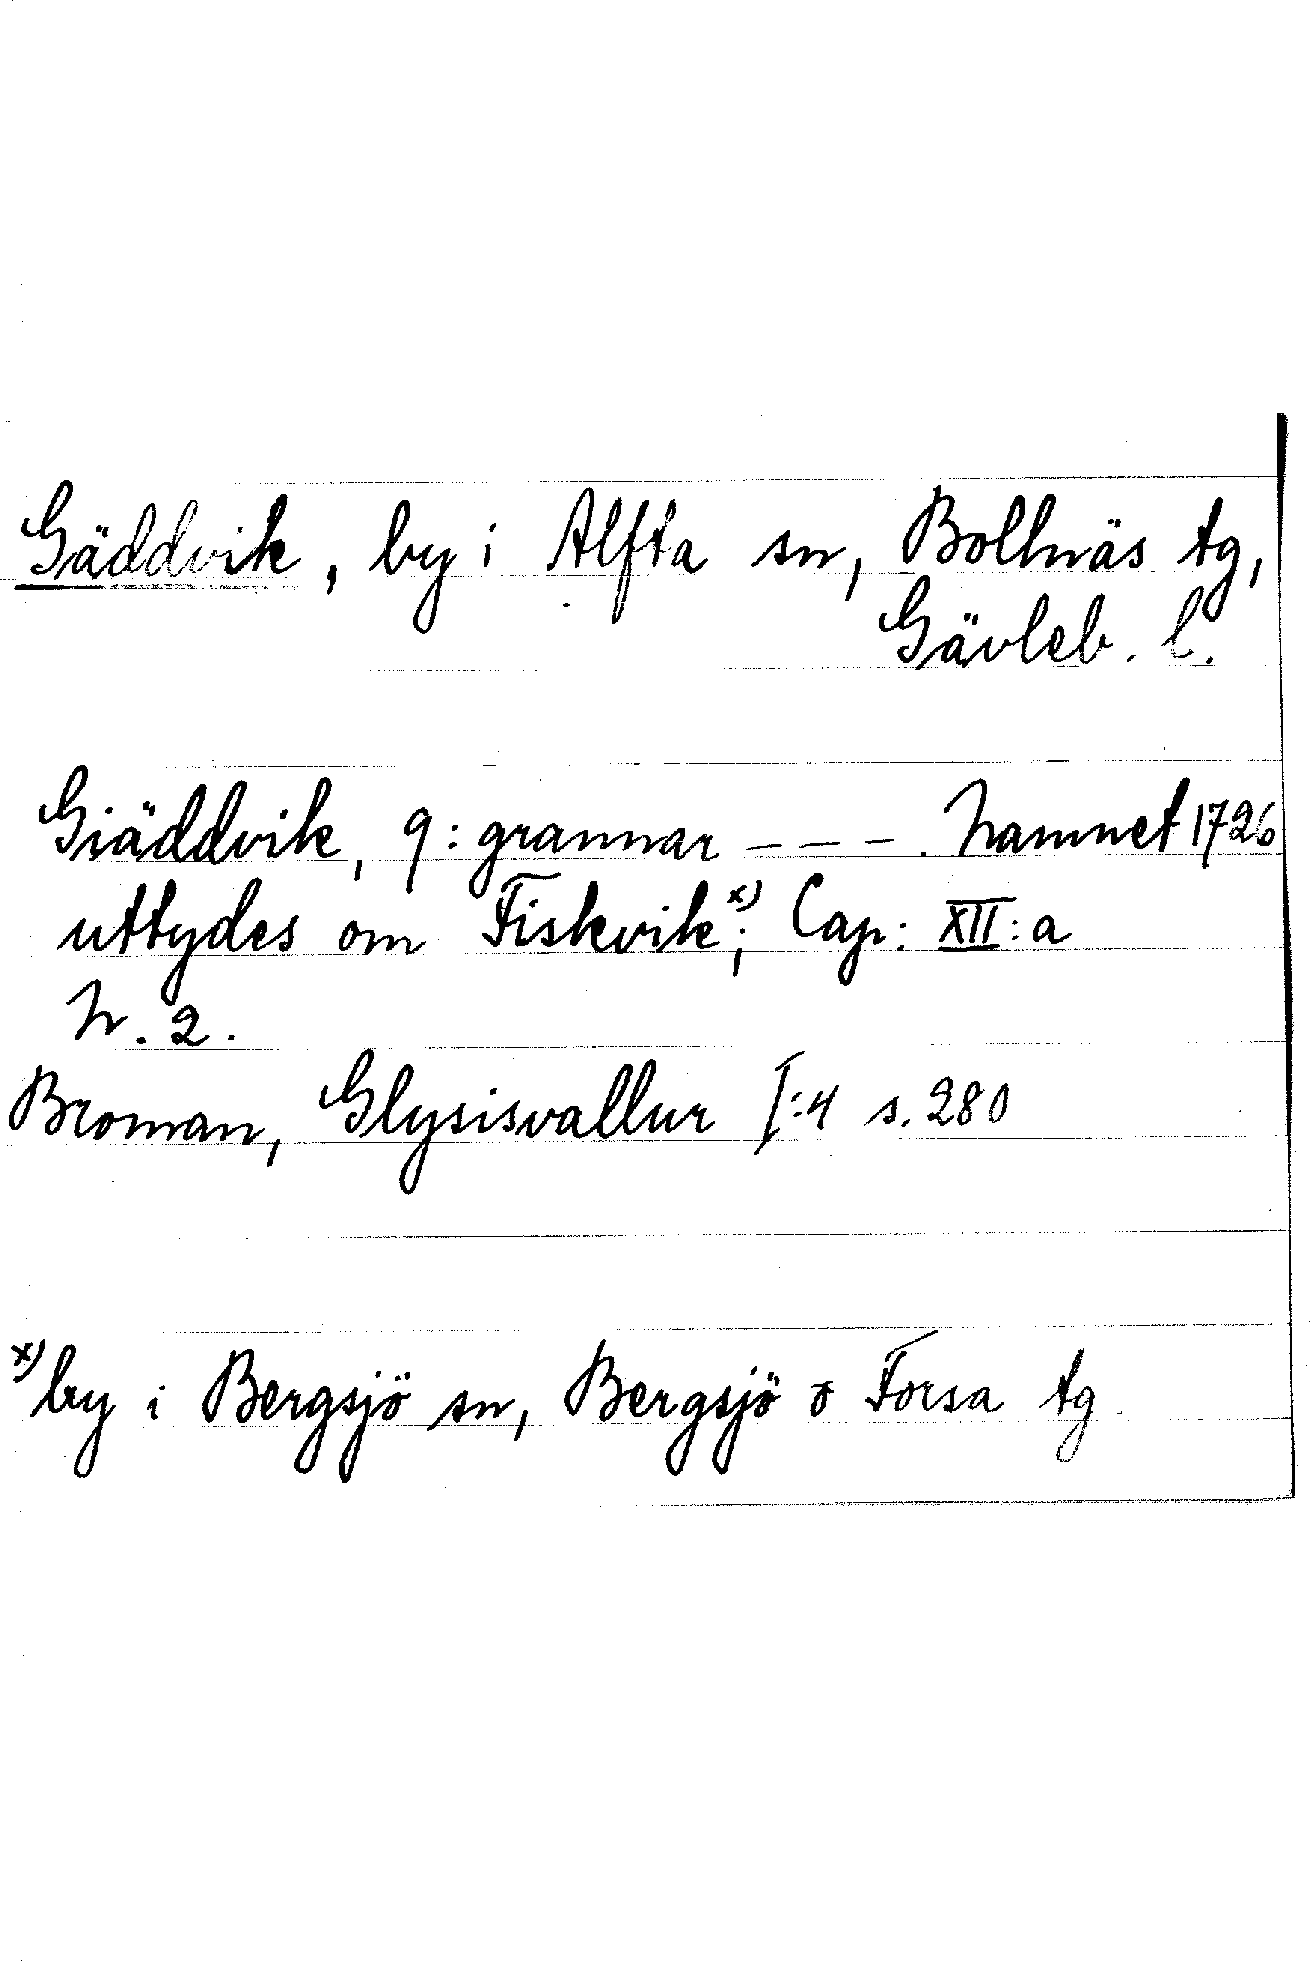 Gäddvik, by i Alfta sn, Bollnäs tg,
Gävleb. l.
Giäddvik, 9: grannar – – – . Namnet 1726
uttydes om Fiskvik x); Cap: XII: a
N. 2.
Broman, Glysisvallur I:4 s. 280
x) by i Bergsjö sn, Bergsjö o Forsa tg